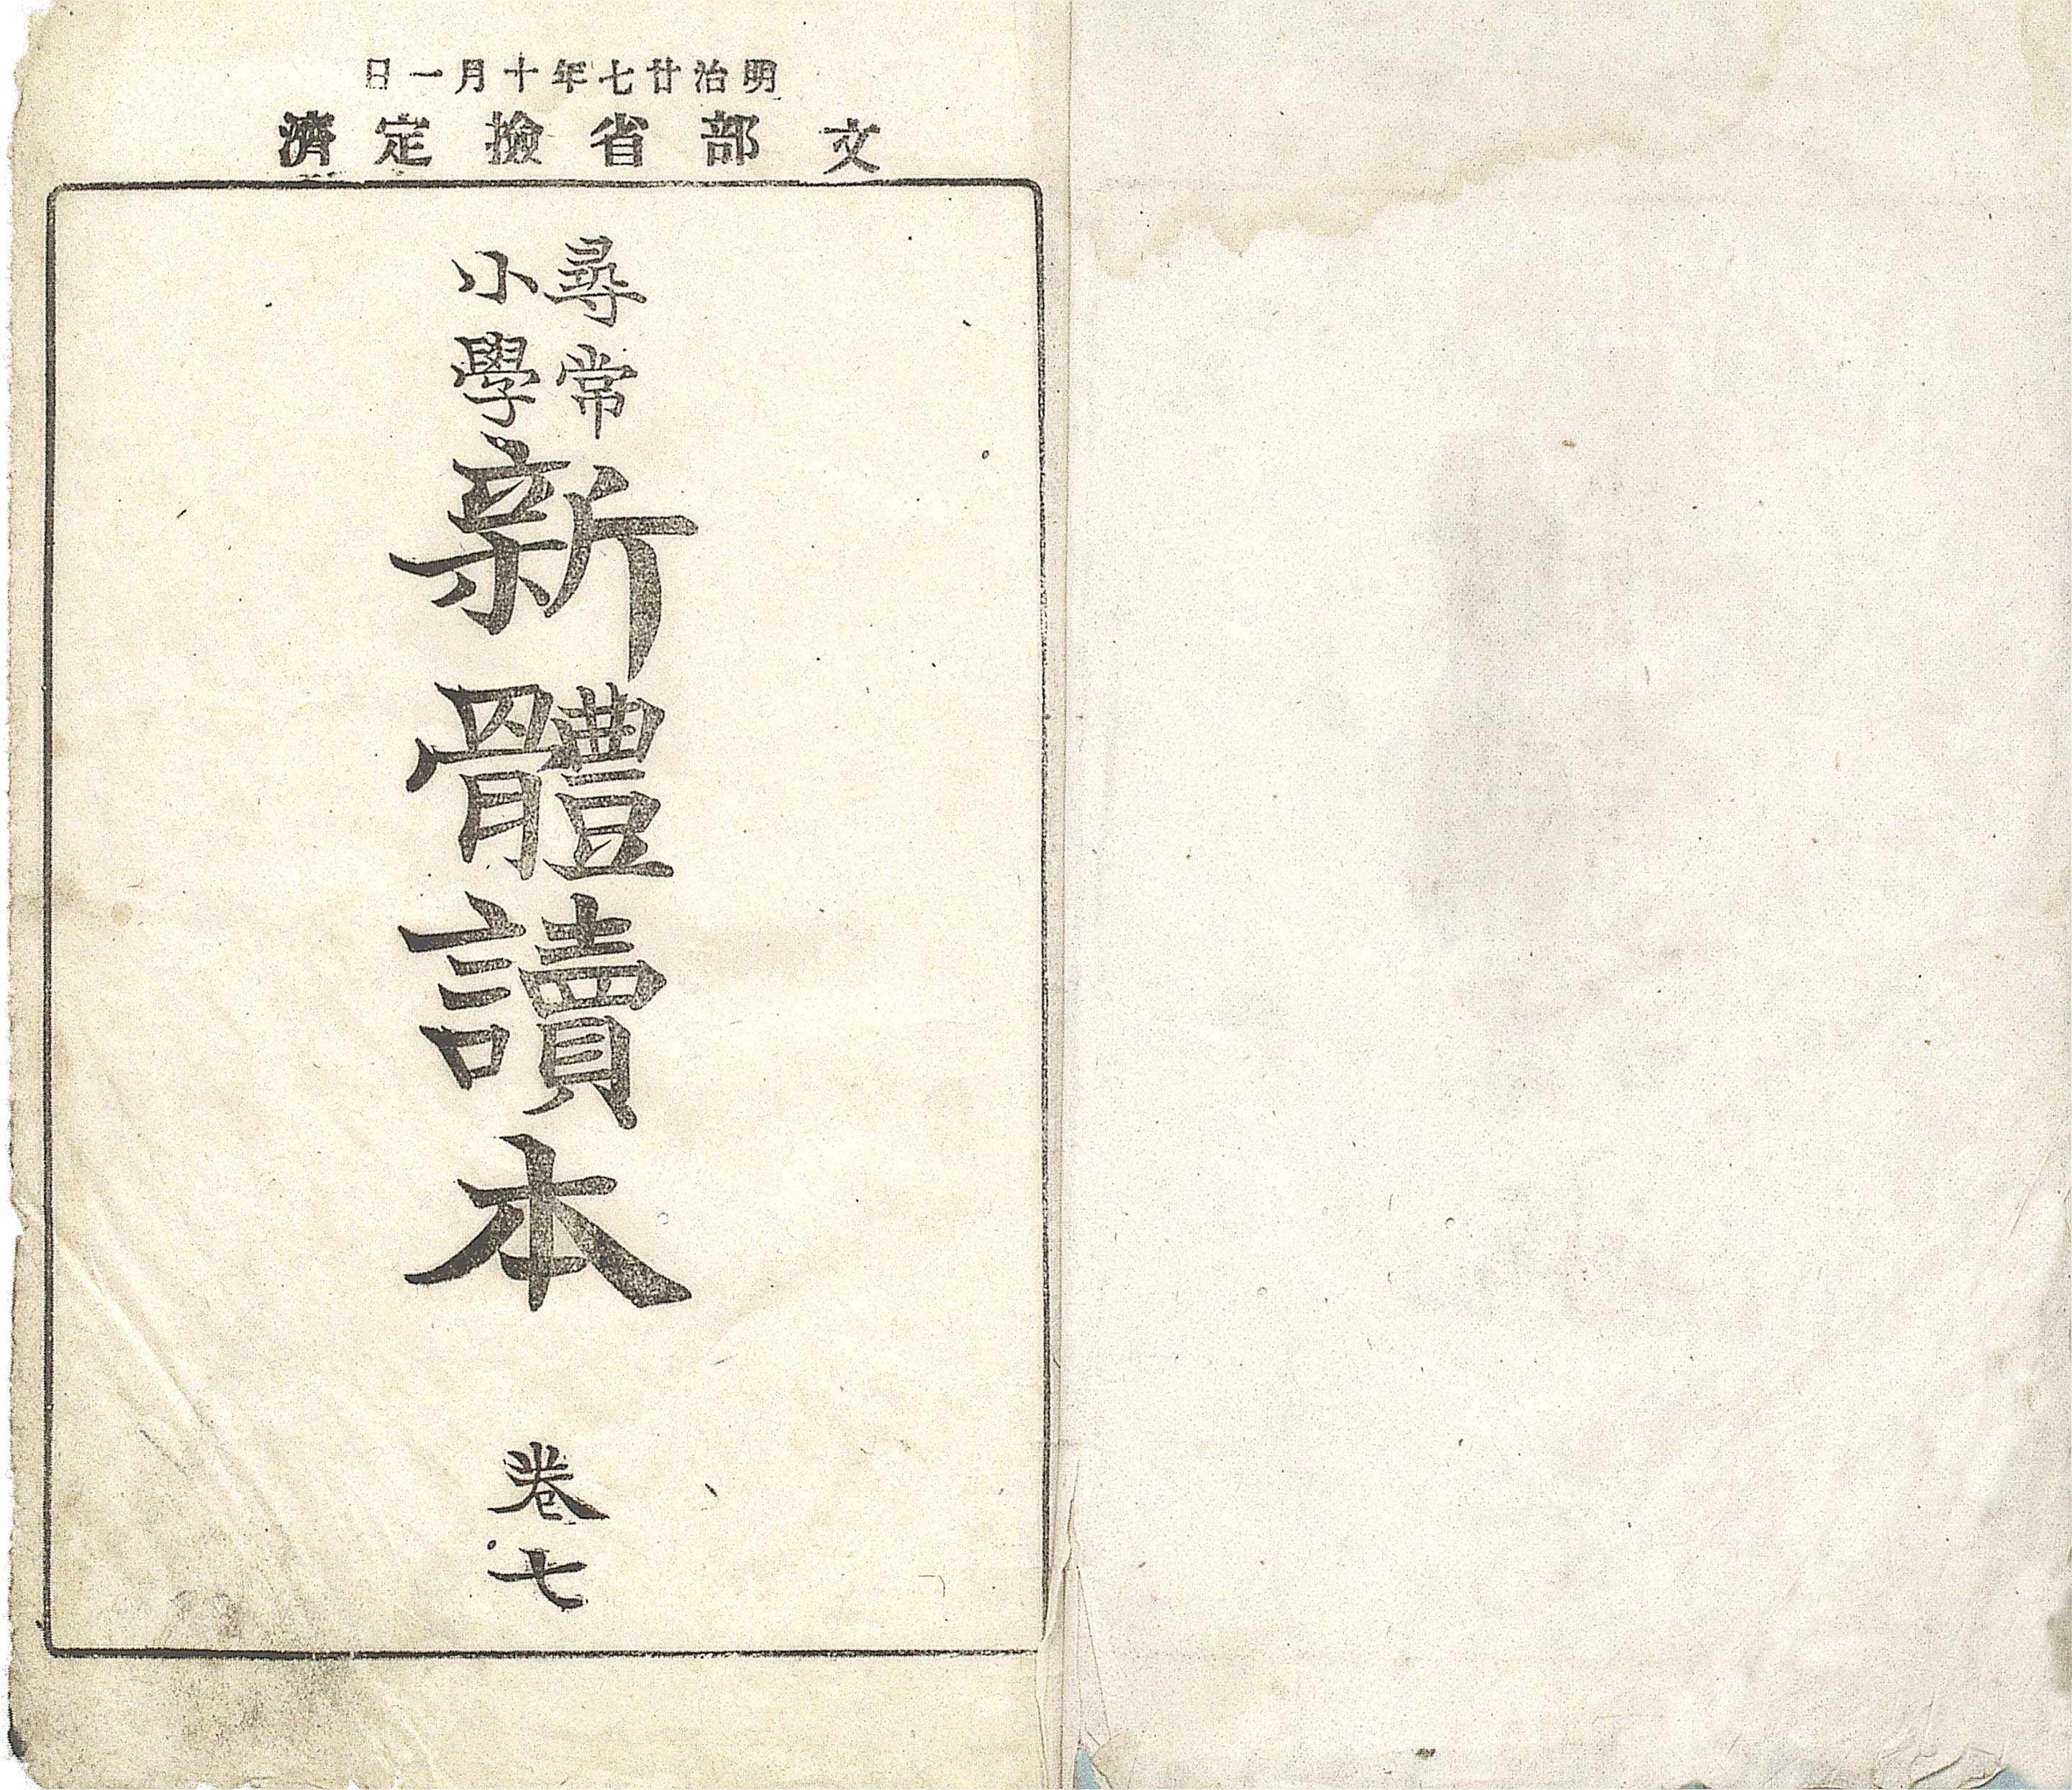 明治廿七年十月一日
文部省檢定濟
尋常
小學
新體讀本
卷七